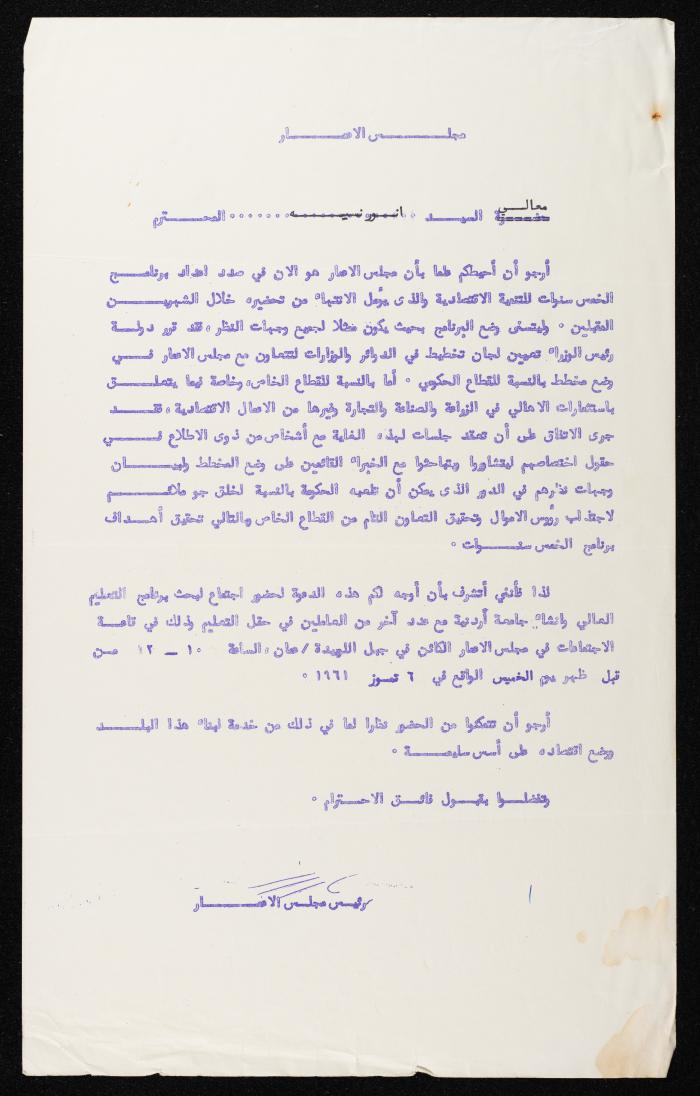 مجلس الاعمار
معالي
حضرة السيد .. انور نسيبه ....... المحترم
أرجو أن أحيطكم علما بأن مجلس الاعمار هو الان في صدد اعداد برنامج
الخمس سنوات للتنمية الاقتصادية والذى يؤمل الانتهاء من تحضيره خلال الشهرين
المقبلين ٠ وليتسنى وضع البرنامج بحيث يكون ممثلا لجميع وجهات النظر ، فقد قرر دولة
رئيس الوزراء تعيين لجان تخطيط في الدوائر والوزارات لتتعاون مع مجلس الاعمار في
وضع مخطط بالنسبة للقطاع الحكومي ٠ أما بالنسبة للقطاع الخاص، وخاصة فيما يتعلق
باستثمارات الاهالي في الزراعة والصناعة والتجارة وغيرها من الاعمال الاقتصادية ، فقد
جرى الاتفاق على أن تعقد جلسات لهذه الغاية مع أشخاص من ذوى الاطلاع في
حقول اختصاصهم ليتشاوروا ويتباحثوا مع الخبراء القائمين على وضع المخطط ولبيان
وجهات نظرهم في الدور الذى يمكن أن تلعبه الحكومة بالنسبة لخلق جو ملائم
لاجتذاب رؤوس الاموال وتحقيق التعاون التام من القطاع الخاص وبالتالي تحقيق أهداف
برنامج الخمس سنوات ٠
لذا فأنني أتشرف بأن أوجه لكم هذه الدعوة لحضور اجتماع لبحث برنامج التعليم
العالي وانشاء جامعة أردنية مع عدد آخر من العاملين في حقل التعليم وذلك في قاعة
الاجتماعات في مجلس الاعمار الكائن في جبل اللويبدة / عمان ، الساعة ١٠ – ١٢ من
قبل ظهر يوم الخميس الواقع في ٦ تموز ١٩٦١ ٠
أرجو أن تتمكنوا من الحضور نظرا لما في ذلك من خدمة لبناء هذا البلد
ووضع اقتصاده على أسس سليمة ٠
وتفضلوا بقبول فائق الاحترام ٠
رئيس مجلس الاعمار